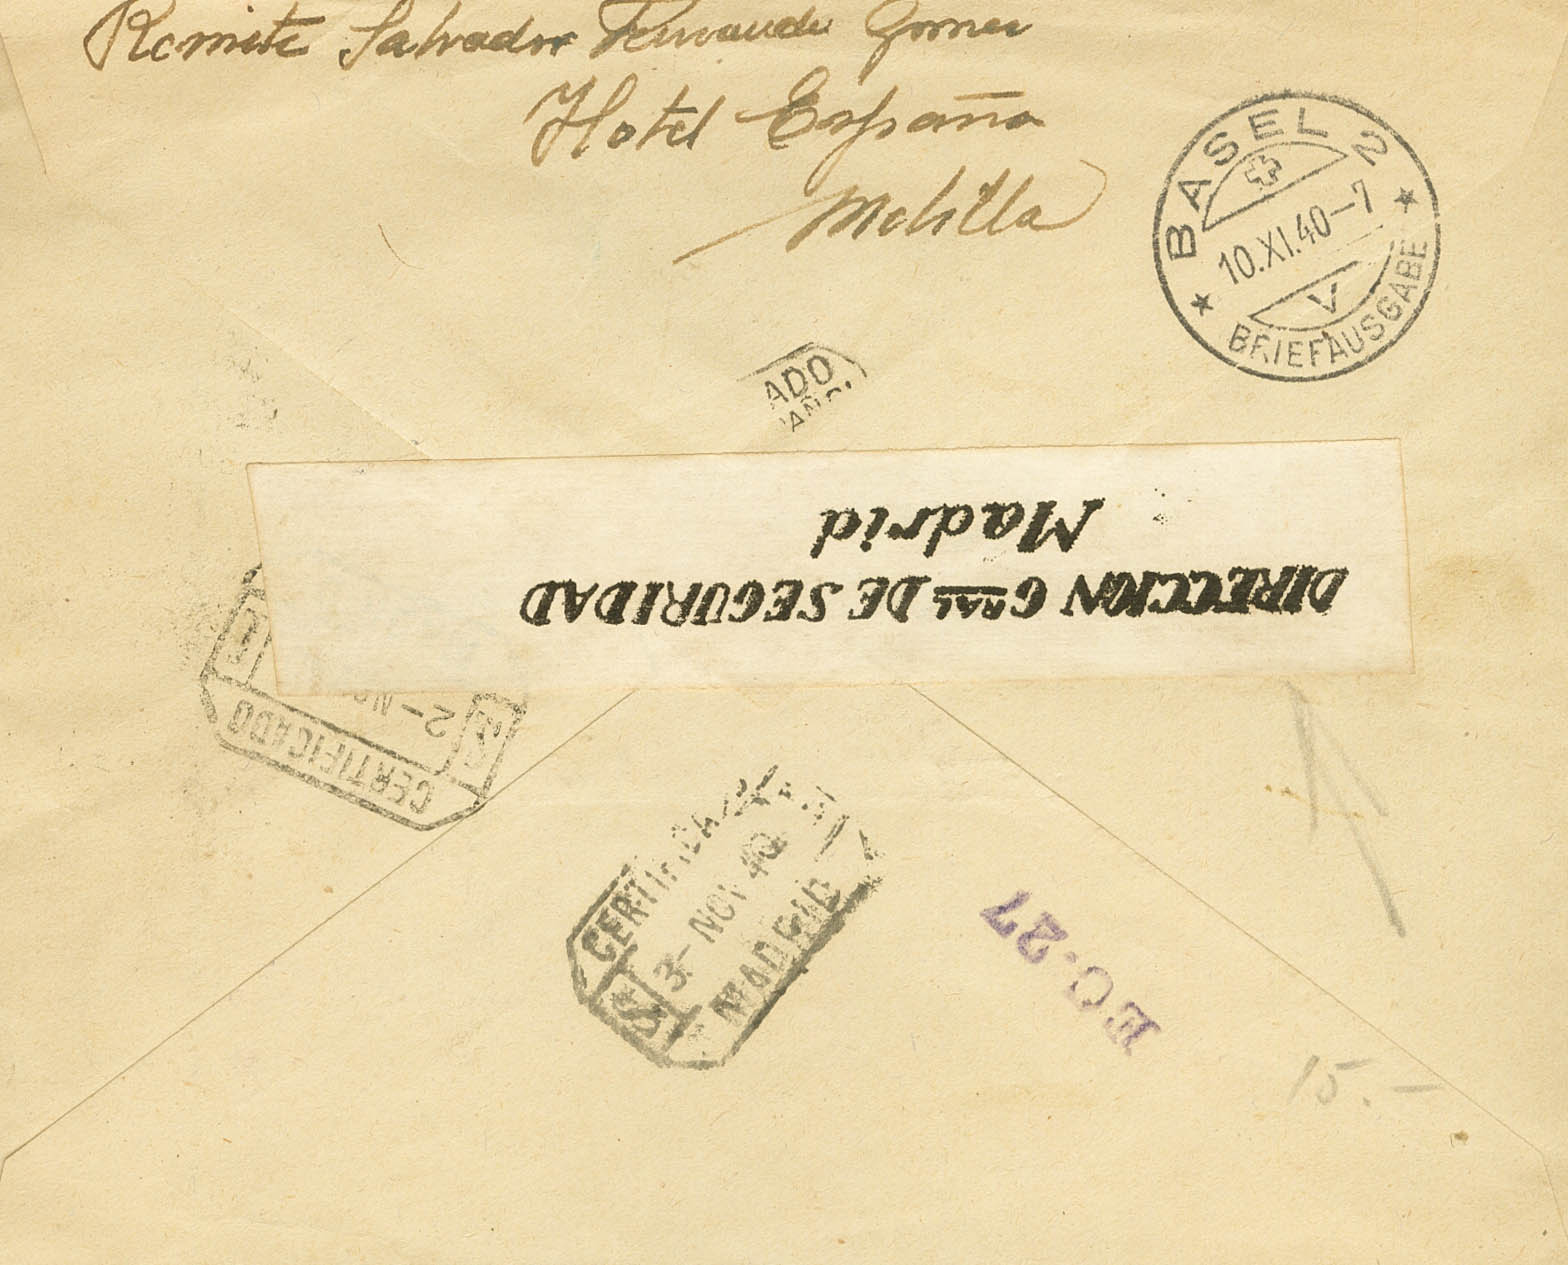 Remite Salvador Fernandez Gomez
Hotel España
Melilla
BASEL 2
10.XI.40-7
V
BRIEFAUSGABE
ADO
DIRECCION Gral DE SEGURIDAD
Madrid
CERTIFICADO
2-NO
CERTIFICA
3-NOV 40
MADRID
EC.27
15.-